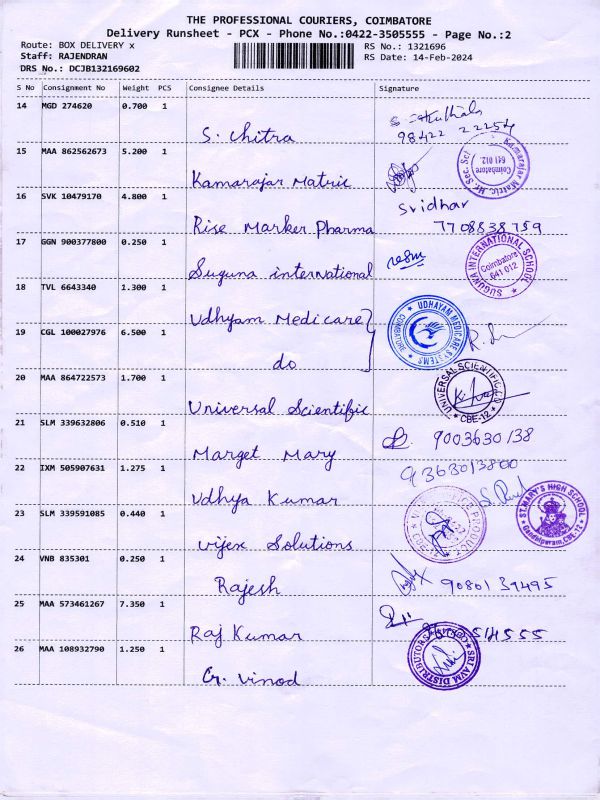 THE PROFESSIONAL COURIERS, COIMBATORE
Delivery Runsheet - PCX - Phone No.:0422-3505555 - Page No.:2
Route: BOX DELIVERY x RS No.: 1321696
Staff: RAJENDRAN RS Date: 14-Feb-2024
DRS No.: DCJB132169602
S No Consignment No Weight PCS Consignee Details Signature
14 MGD 274620 0.700 1
S. Chitra
98422 22254
15 MAA 862562673 5.200 1
Kamarajar Matric
Kamarajar Matric. Hr. Sec. Sch
Coimbatore
641 012.
16 SVK 10479170 4.800 1
Rise Marker Pharma
Sridhar
7708838759
17 GGN 900377800 0.250 1
Suguna international
SUGUNA INTERNATIONAL SCHOOL
Coimbatore
641 012
18 TVL 6643340 1.300 1
Udhyam Medicare
UDHAYAM MEDICARE SYSTEMS
COIMBATORE
19 CGL 100027976 6.500 1
do
20 MAA 864722573 1.700 1
Universal Scientific
UNIVERSAL SCIENTIFIC CO
CBE-12
21 SLM 339632806 0.510 1
Marget Mary
9003630138
22 IXM 505907631 1.275 1
Udhya Kumar
9363013800
ST.MARY'S HIGH SCHOOL
Gandhipuram, CBE-12
23 SLM 339591085 0.440 1
Vijex Solutions
24 VNB 835301 0.250 1
Rajesh
90801 39495
25 MAA 573461267 7.350 1
Raj Kumar
26 MAA 108932790 1.250 1
Cr. Vinod
SRI AVM DISTRIBUTORS